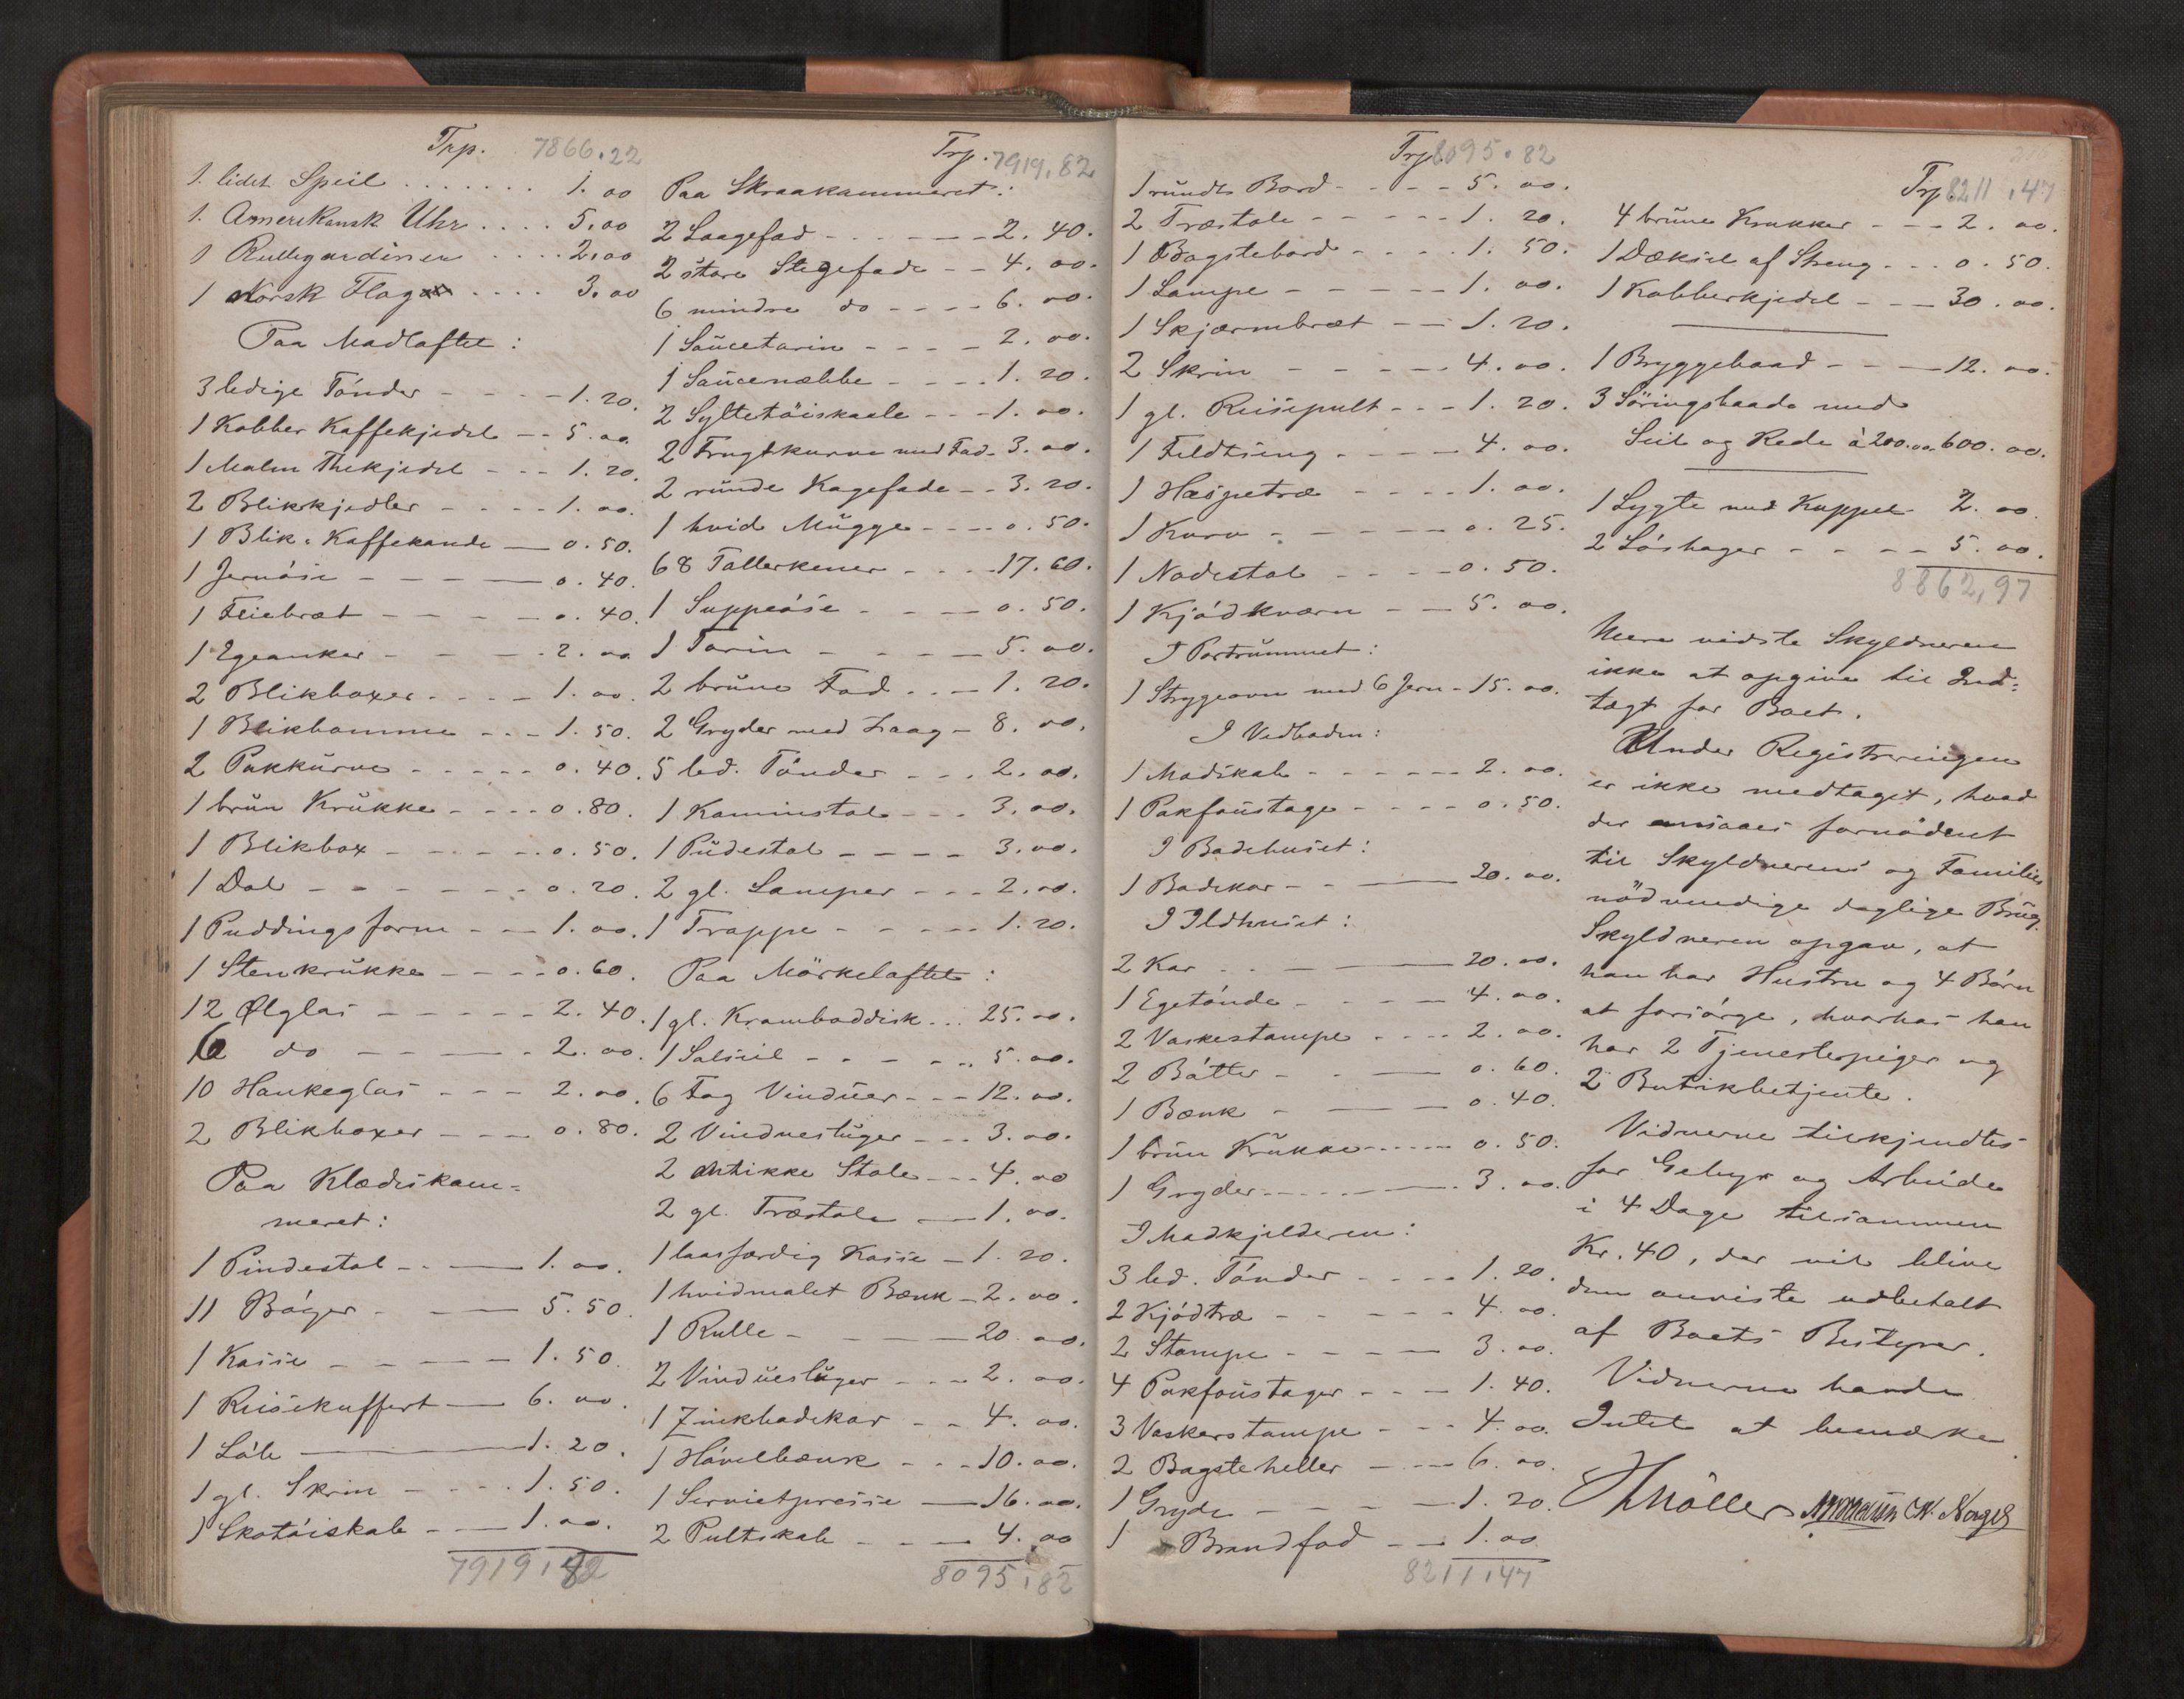 Trp. 7866.22
1. lidet Speil ....... 1.00
1. Amerikansk Uhr .... 5.00
1 Rullegardinen .... 2.00
1 Norsk Flag .... 3.00
Paa Madloftet:
3 ledige Tönder - - - - 1.20.
1 Kobber Kaffekjedel - - 5.00
1 Malm Thekjedel - - - 1.20.
2 Blikkjedler - - - - 1.00.
1 Blik-Kaffekande - 0.50.
1 Jernöse - - - 0.40.
1 Feiebræt - - - - 0.40.
1 Egeanker - - - - 2.00
2 Blikboxer - - - - 1.00.
1 Blikbomme - - - 1.50.
2 Pakkurve - - - - - 0.40.
1 brun Krukke - - - - 0.80.
1 Blikbox - - - - - - 0.50.
1 Dal - - - - - - 0.20.
1 Puddingsform - - 1.00.
1 Stenkrukke - - - - 0.60.
12 Ølglas - - - - - 2.40.
6 do - - - - 2.00.
10 Hankeglas - - - 2.00.
2 Blikboxer - - - 0.80.
Paa Klædeskam-
meret:
1 Pindestol - - - 1.00.
11 Böger - - - 5.50.
1 Kasse - - - - - 1.50.
1 Reisekuffert - 6.00.
1 Löb - 1.20.
1 gl. Skrin - - - - 1.50.
1 Skotöiskab - - - 1.00.
7919,82
Trp. 7919,82
Paa Skraakammeret:
2 Laagefad - - - - - - 2.40.
2 store Stegefade - - 4.00.
6 mindre do - - - - 6.00.
1 Saucetarin - - - - 2.00.
1 Saucenæbbe - - - - 1.20.
2 Syltetöiskaale - - - 1.00.
2 Frugtkurve med Fad - 3.00.
2 runde Kagefade - - 3.20.
1 hvid Mugge - - - - 0.50.
68 Tallerkener - - - - 17.60.
1 Suppeöse - - - - 0.50.
1 Tarin - - - - - 5.00.
2 brune Fad - - - 1.20.
2 Gryder med Laag - 8.00.
5 led. Tönder - - - 2.00.
1 Kaminstol - - - 3.00.
1 Pudestol - - - - 3.00.
2 gl. Lamper - - - 2.00.
1 Trappe - - - - - 1.20.
Paa Mörkeloftet:
1 gl. Kramboddisk - - - 25.00.
1 Solseil - - - - - 5.00.
6 Fag Vinduer - - - 12.00.
2 Vinduesluger - - - 3.00.
2 antikke Stole - - - 4.00
2 gl. Træstole - 1.00.
1 laasfærdig Kasse - 1.20.
1 hvidmalet Bænk - 2.00.
1 Rulle - - - 20.00.
2 Vinduesluger - - - 2.00.
1 Zinkbadekar - - 4.00.
1 Hövelbænk - - - 10.00.
1 Servietpresse - 16.00.
2 Pultskab - - - 4.00
8095,82
Trp. 8095.82
1 rundt Bord - - - - 5.00.
2 Træstole - - - - - 1.20.
1 Bagstebord - - - - 1.50.
1 Lampe - - - - - 1.00.
1 Skjærmbræt - - 1.20.
2 Skrin - - - - - 4.00.
1 gl. Reisepult - - - 1.20.
1 Feldtseng - - - - 4.00.
1 Haspetræ - - - - 1.00.
1 Kurv - - - - - 0.25.
1 Nodestol - - - - 0.50.
1 Kjödkværn - - 5.00.
I Portrummet:
1 Strygeovn med 6 Jern - 15.00.
I Vedboden:
1 Madskab - - - - - - 2.00.
1 Pakfoustage - - - - 0.50.
I Badehuset:
1 Badekar - - - 20.00.
I Ildhuset:
2 Kar - - - 20.00.
1 Egetönde - - - - 4.00.
2 Vaskestampe - - - - 2.00.
2 Bötter - - - 0.60.
1 Bænk - - - 0.40.
1 brun Krukke - - - - - 0.50.
1 Gryder - - - - - 3.00.
I Madkjelderen:
3 led. Tönder - - - - 1.20.
2 Kjödtræ - - - - - 4.00.
2 Stampe - - - - 3.00.
4 Pakfoustager - - - 1.40.
3 Vaskerstampe - - - 4.00.
2 Bagsteheller - - - 6.00.
1 Gryde - - - - 1.20.
1 Brandfad - - 1.00
8211,47
Trp 8211,47
4 brune Krukker - - - 2.00.
1 Dæksel af Streng - - - 0.50.
1 Kobberkjedel - - - 30.00.
1 Bryggebaad - - - 12.00.
3 Söringsbaade med
Seil og Rede à 200.00 600.00.
1 Lygte med Kuppel - 2.00
2 Löshager - - - - 5.00.
8862,97
Mere vidste Skyldneren
ikke at opgive til Ind-
tægt for Boet.
Under Registreringen
er ikke medtaget, hvad
der ansaaes fornödent
til Skyldnerens og Families
nödvendige daglige Brug.
Skyldneren opgav, at
han har Hustru og 4 Börn
at forsörge, hvorhos han
har 2 Tjenestepiger og
2 Butikbetjente.
Vidnerne tilkjendtes
for Gebyr og Arbeide
i 4 Dage tilsammen
Kr. 40, der vil blive
dem anviste udbetalt
af Boets Bestyrer.
Vidnerne havde
Intet at bemærke
HMöller N. Nagel